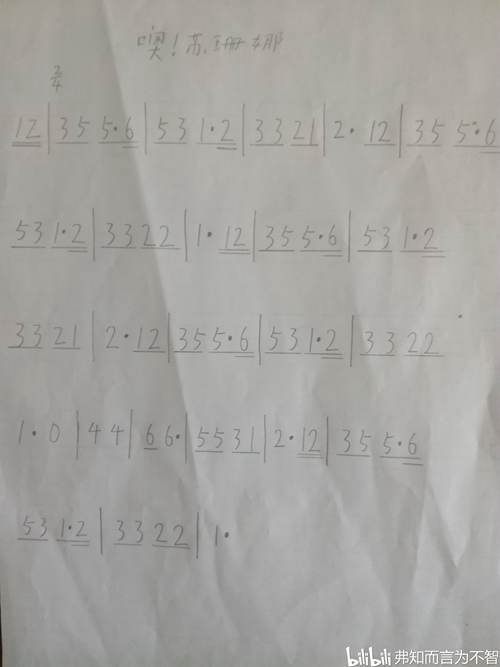 噢！苏珊娜
2/4
12|35 5·6|53 1·2|33 21|2· 12|35 5·6
53 1·2|33 22|1· 12|35 5·6|53 1·2
33 21|2· 12|35 5·6|53 1·2|33 22
1·0|44|6 6·|55 31|2· 12|35 5·6
53 1·2|33 22|1·
bilibili 弗知而言为不智